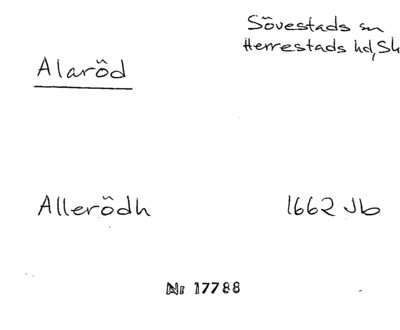 Sövestads sn
Herrestads hd, Sk
Alaröd
Allerödh 1662 Jb
Nr 17788